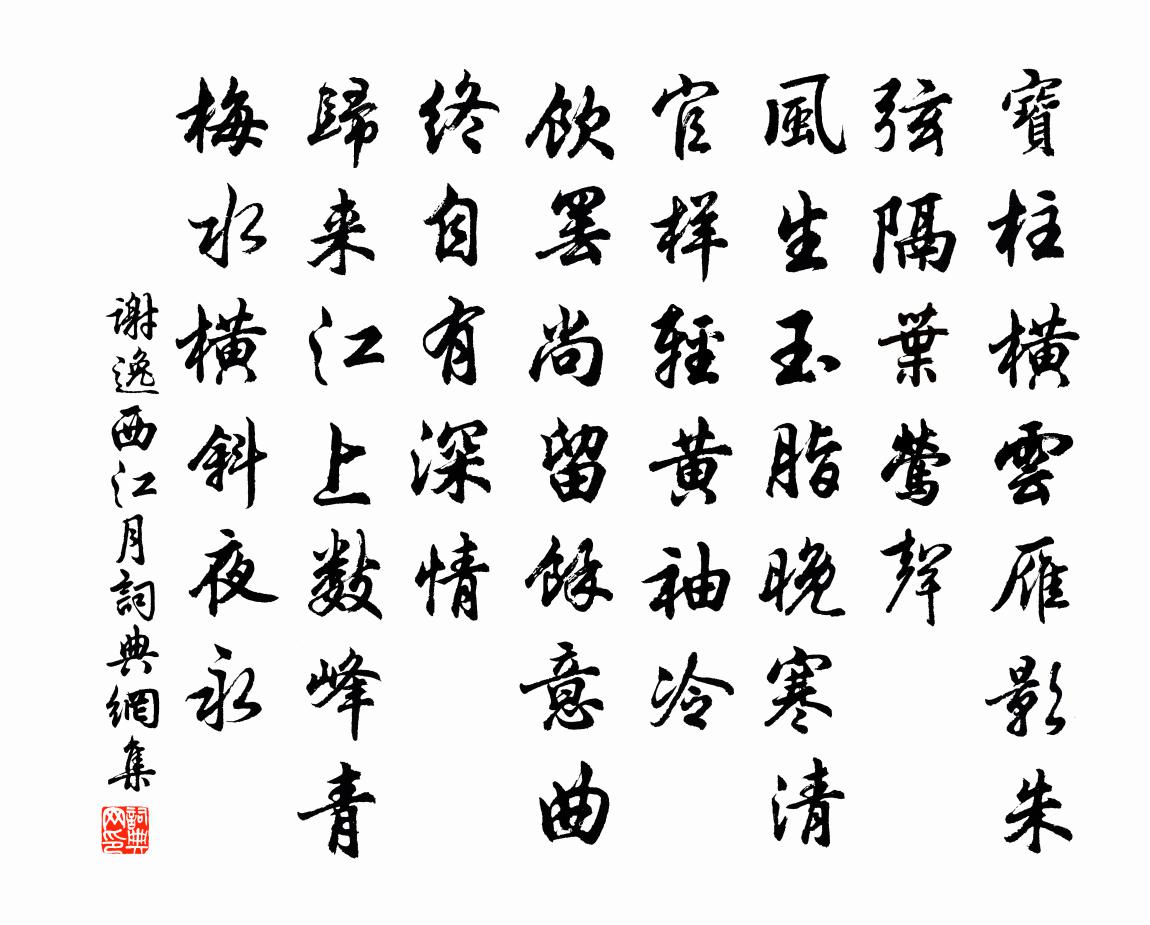 寶柱橫雲雁影朱
弦隔葉鶯聲
風生玉脂晚寒清
官樣輕黄袖冷
飲罷尚留餘意曲
終自有深情
歸来江上數峰青
梅水橫斜夜永
謝逸西江月詞典網集
詞典网印